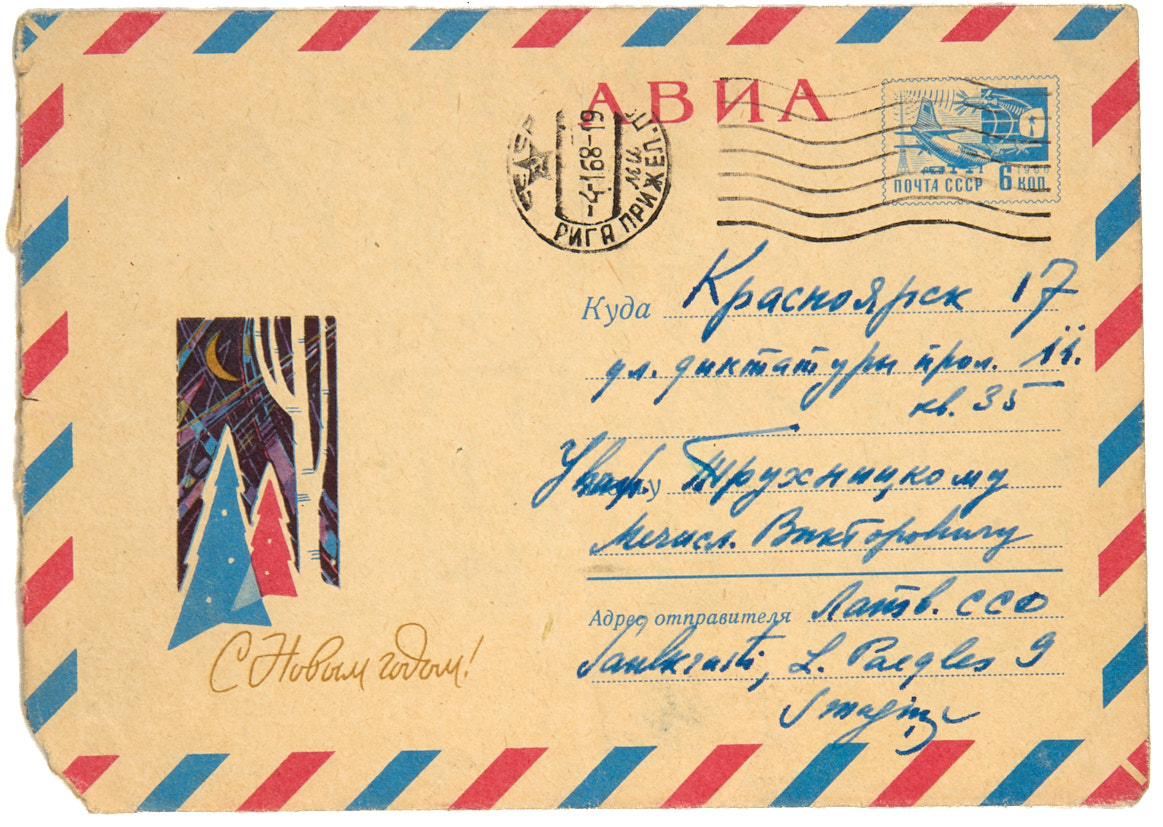 АВИА
-4.1.68-19
РИГА ПРИЖЕЛ. П.
ПОЧТА СССР 6 КОП.
1966
Куда Красноярск 17
ул. диктатуры прол. 11.
кв. 35
Уваж. Трухницкому
Мечисл. Викторовичу
Адрес отправителя Латв. ССО
Saulkrasti, L. Paegles 9
С Новым годом!